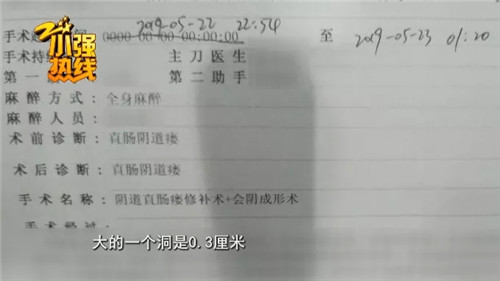 2019-05-22 22:54
小强热线
0000 00 00 00:00:00 至 2019-05-23 01:20
手术持 主刀医生
第一 第二助手
麻醉方式：全身麻醉
麻醉人员：
术前诊断：直肠阴道瘘
术后诊断：直肠阴道瘘
手术名称：阴道直肠瘘修补术+会阴成形术
大的一个洞是0.3厘米